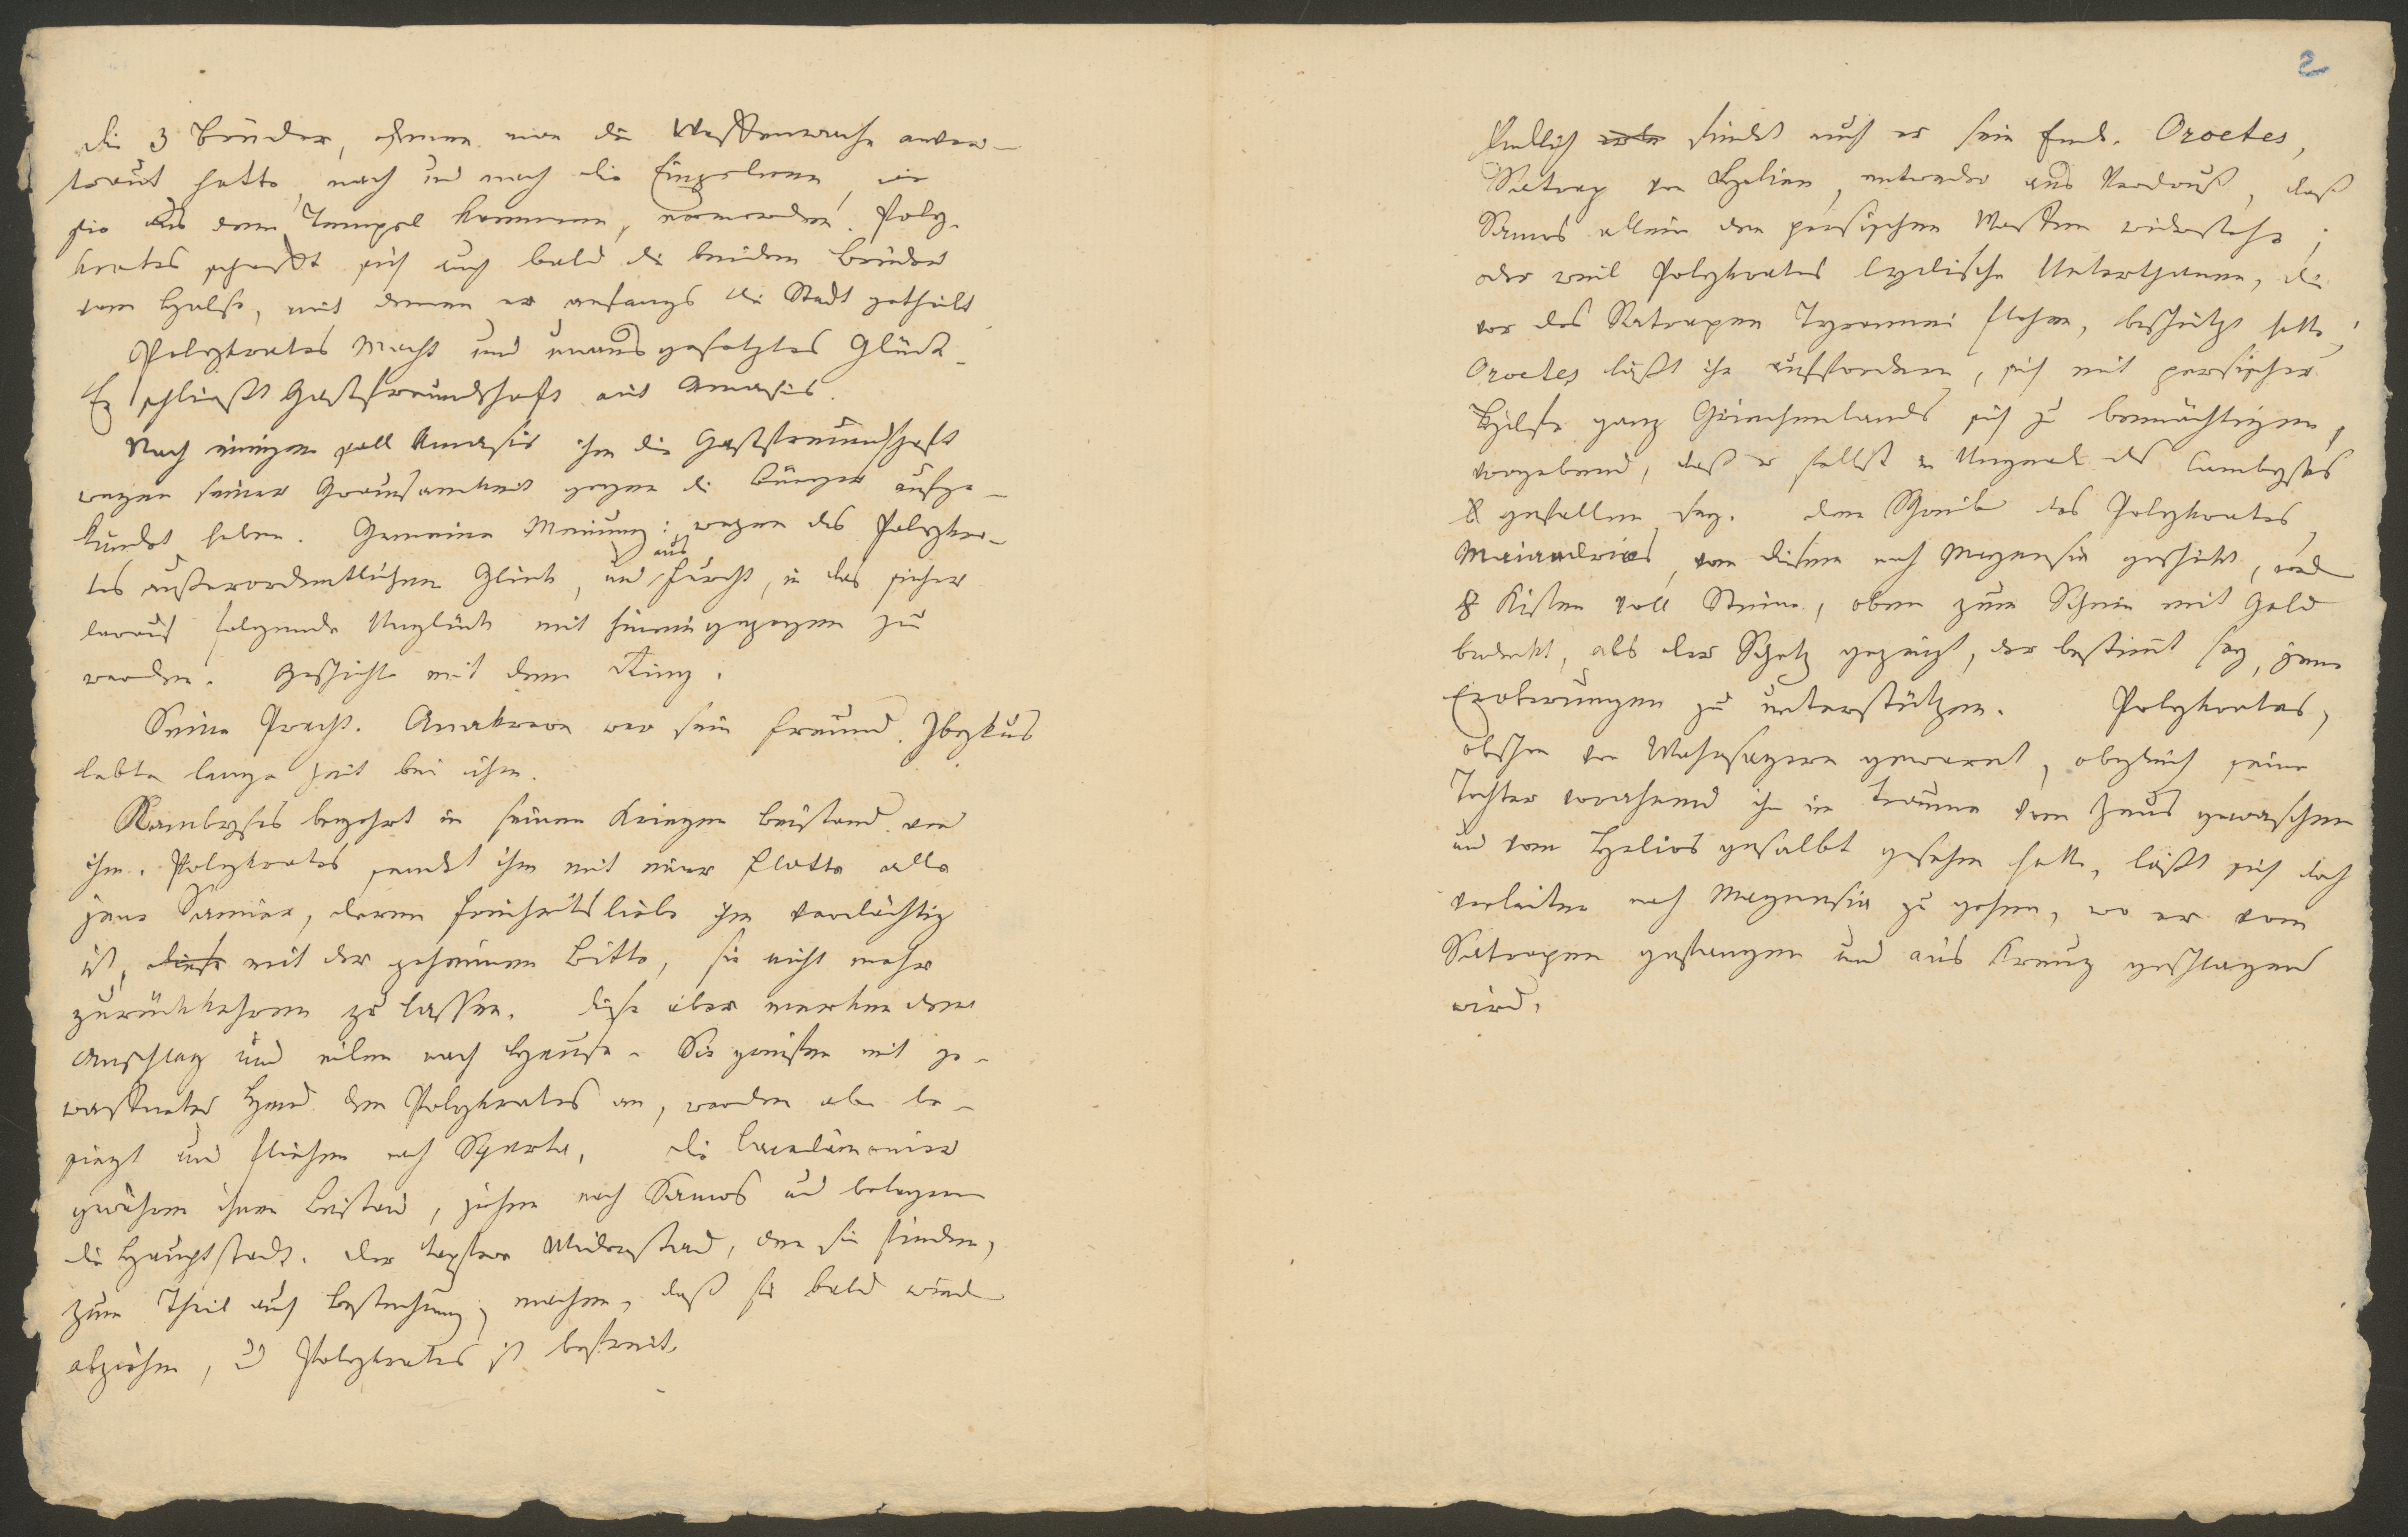 die 3 Brüder, denen man die Waffenwache anver-
traut hatte, nach und nach die Einzelnen, wie
sie aus dem Tempel kommen, ermorden. Poly-
krates schafft sich auch bald die beiden Brüder
vom Halse, mit denen er anfangs die Stadt getheilt
Polykrates Macht und unausgesetztes Glück.
Er schließt Gastfreundschaft mit Amasis.
Nach einigen soll Amasis ihm die Gastfreundschaft
wegen seiner Grausamkeit gegen die Bürger aufge-
kündet haben. Gemeine Meinung: wegen des Polykra-
tes außerordentlichen Glück, und aus Furcht, in das sicher
darauf folgende Unglück mit hineingezogen zu
werden. Geschichte mit dem Ring.
Seine Pracht. Anakreon war sein Freund. Ibykus
lebte lange Zeit bei ihm.
Kambyses begehrt in seinen Kriegen Beistand von
ihm. Polykrates sendet ihm mit einer Flotte alle
jene Samier, deren Freiheitsliebe ihm verdächtig
ist, diese mit der geheimen Bitte, sie nicht mehr
zurückkehren zu lassen. Diese aber merken den
Anschlag und eilen nach Hause. Sie greifen mit ge-
waffneter Hand den Polykrates an, werden aber be-
siegt und fliehen nach Sparta. Die Lacedämonier
gewähren ihnen Beistand, ziehen nach Samos und belagern
die Hauptstadt. Der tapfere Widerstand, den sie finden,
zum Theil auch Bestechung, machen, daß sie bald wieder
abziehen, und Polykrates ist befreit.
2
Endlich findet auch er sein Ende. Oroetes,
Satrap von Lydien, entweder aus Verdruß, daß
Samos allein den persischen Waffen widerstehe;
oder weil Polykrates lydische Unterthanen, die
vor des Satrapen Tyrannei flohen, beschützt hatte;
Oroetes läßt ihn auffordern, sich mit persischer
Hilfe ganz Griechenlands sich zu bemächtigen,
vorgebend, daß er selbst in Ungnade des Cambyses
gefallen sey. Dem Schreiber des Polykrates,
Maiandrios, von diesem nach Magnesia geschickt, wird
8 Kisten voll Steine, oben zum Schein mit Gold
bedeckt, als der Schatz gezeigt, der bestimmt sey, jene
Eroberungen zu unterstützen. Polykrates,
obschon von Wahrsagern gewarnt, obgleich seine
Tochter vorahnend ihn im Traume vom Zeus gewaschen
und vom Helios gesalbt gesehen hatte, läßt sich doch
verleiten nach Magnesia zu gehen, wo er vom
Satrapen gefangen und ans Kreuz geschlagen
wird.